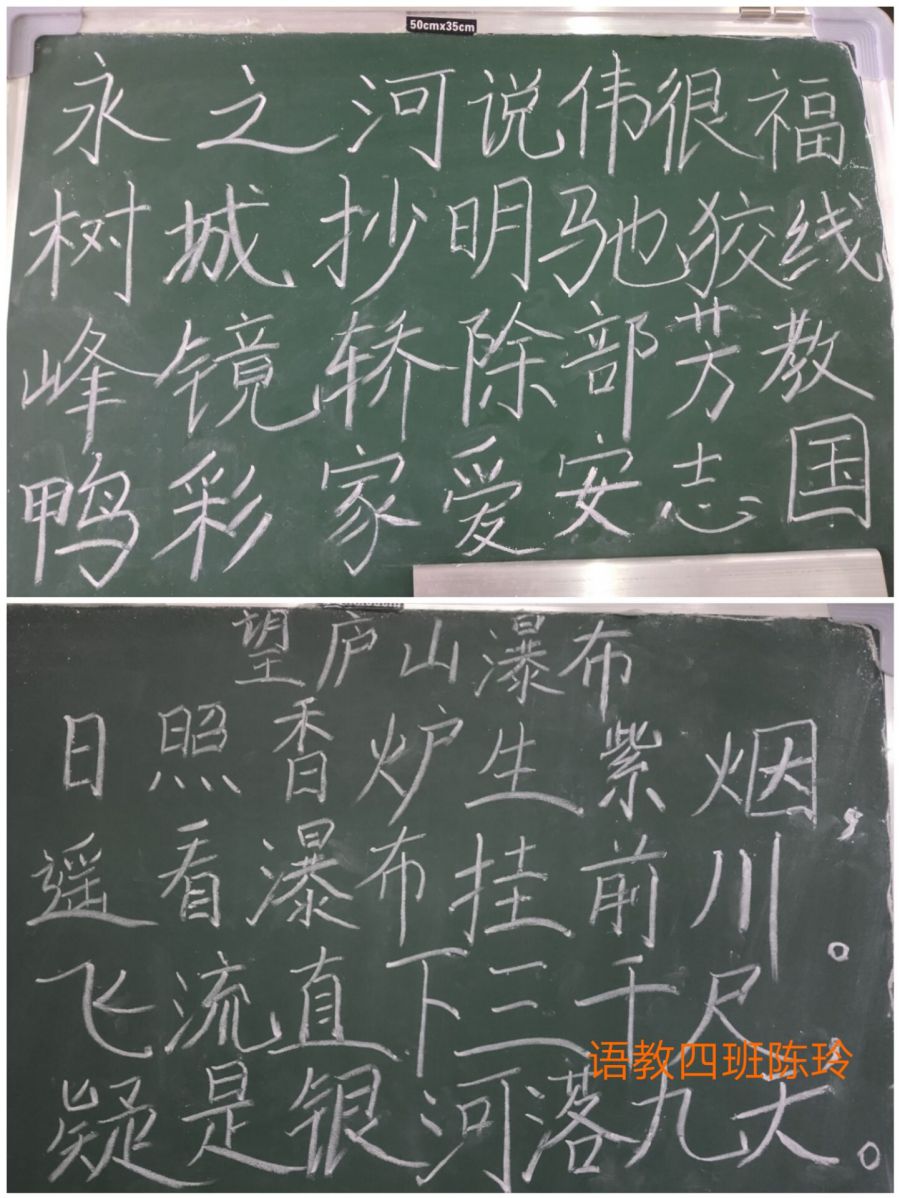 50cmx35cm
永之河说伟很福
树城抄明驰狡线
峰镜轿除部芳教
鸭彩家爱安志国
望庐山瀑布
日照香炉生紫烟，
遥看瀑布挂前川。
飞流直下三千尺，
语教四班陈玲
疑是银河落九天。